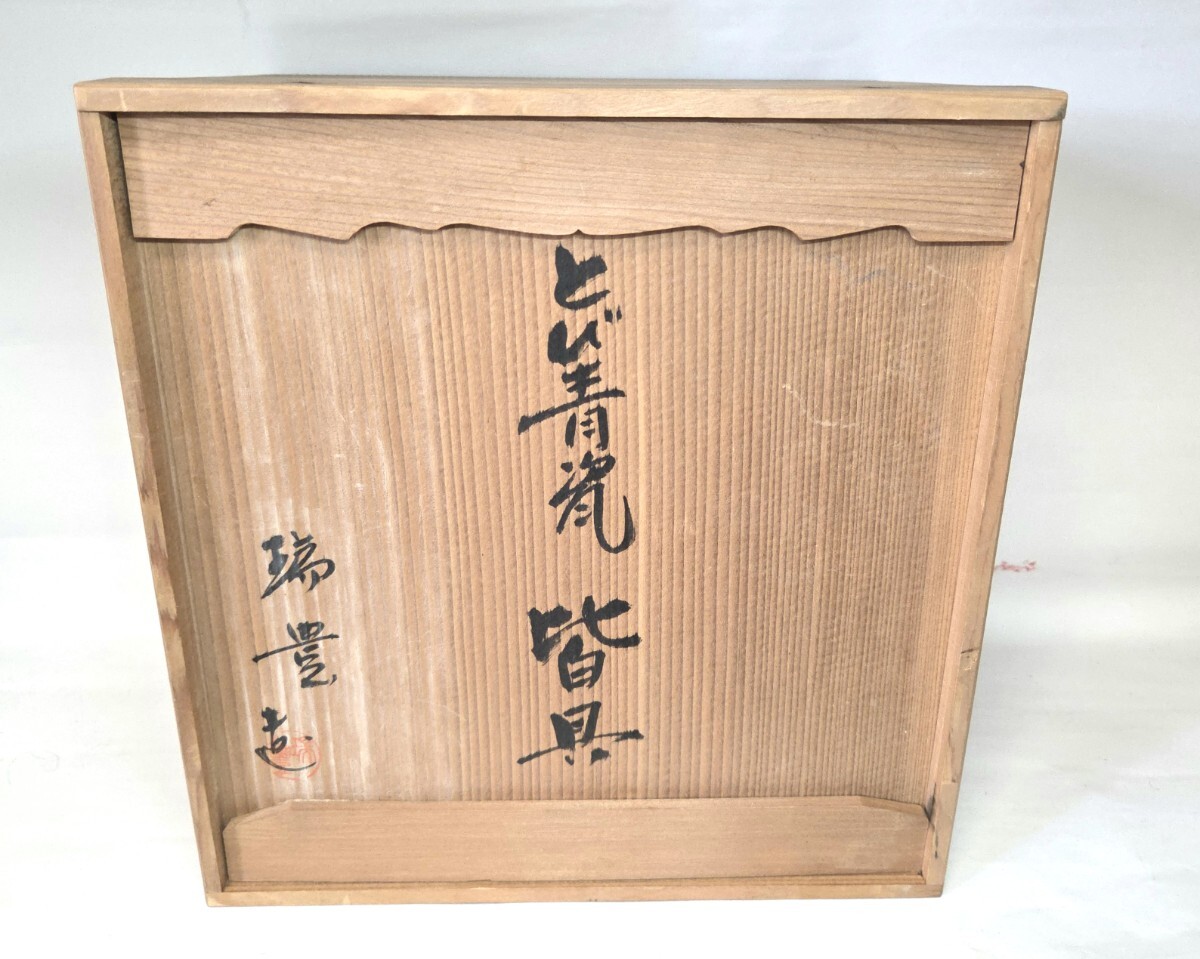 とび青瓷 皆具
瑞豊造